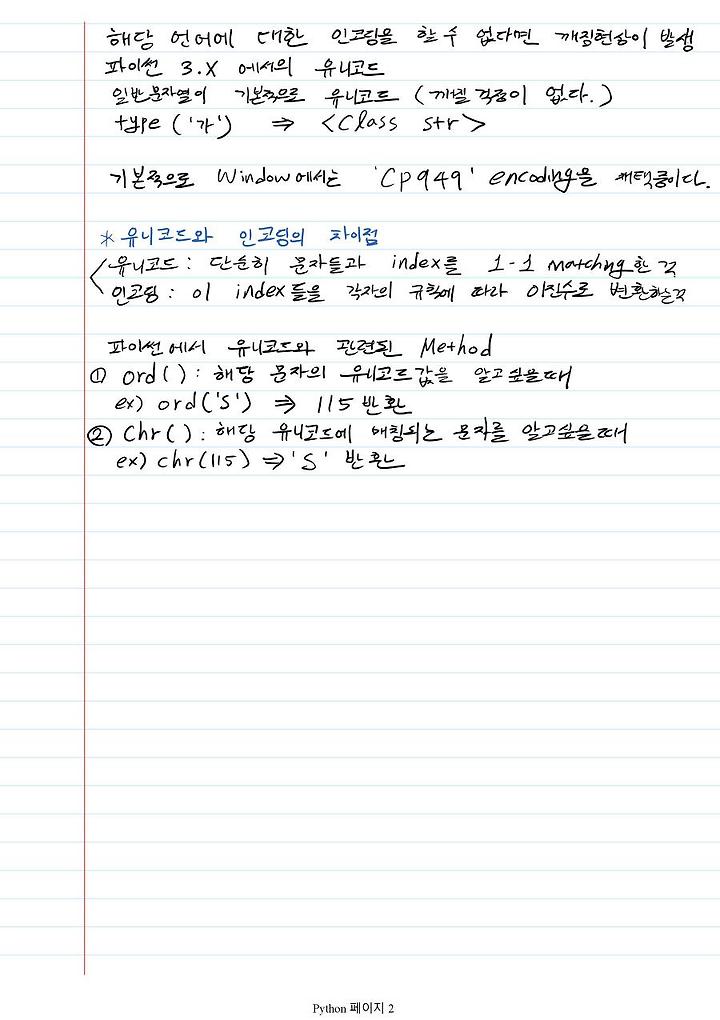 해당 언어에 대한 인코딩을 할 수 없다면 깨짐현상이 발생
파이썬 3.X 에서의 유니코드
일반문자열이 기본적으로 유니코드 (깨질 걱정이 없다.)
type ('가') ⇒ <Class str>
기본적으로 Window에서는 'Cp949' encoding을 채택중이다.
* 유니코드와 인코딩의 차이점
유니코드 : 단순히 문자들과 index를 1-1 matching한 것
인코딩 : 이 index들을 각자의 규칙에 따라 이진수로 변환하는것
파이썬에서 유니코드와 관련된 Method
① ord() : 해당 문자의 유니코드값을 알고싶을때
ex) ord('S') ⇒ 115 반환
② Chr() : 해당 유니코드에 매칭되는 문자를 알고싶을때
ex) chr(115) ⇒ 'S' 반환
Python 페이지 2